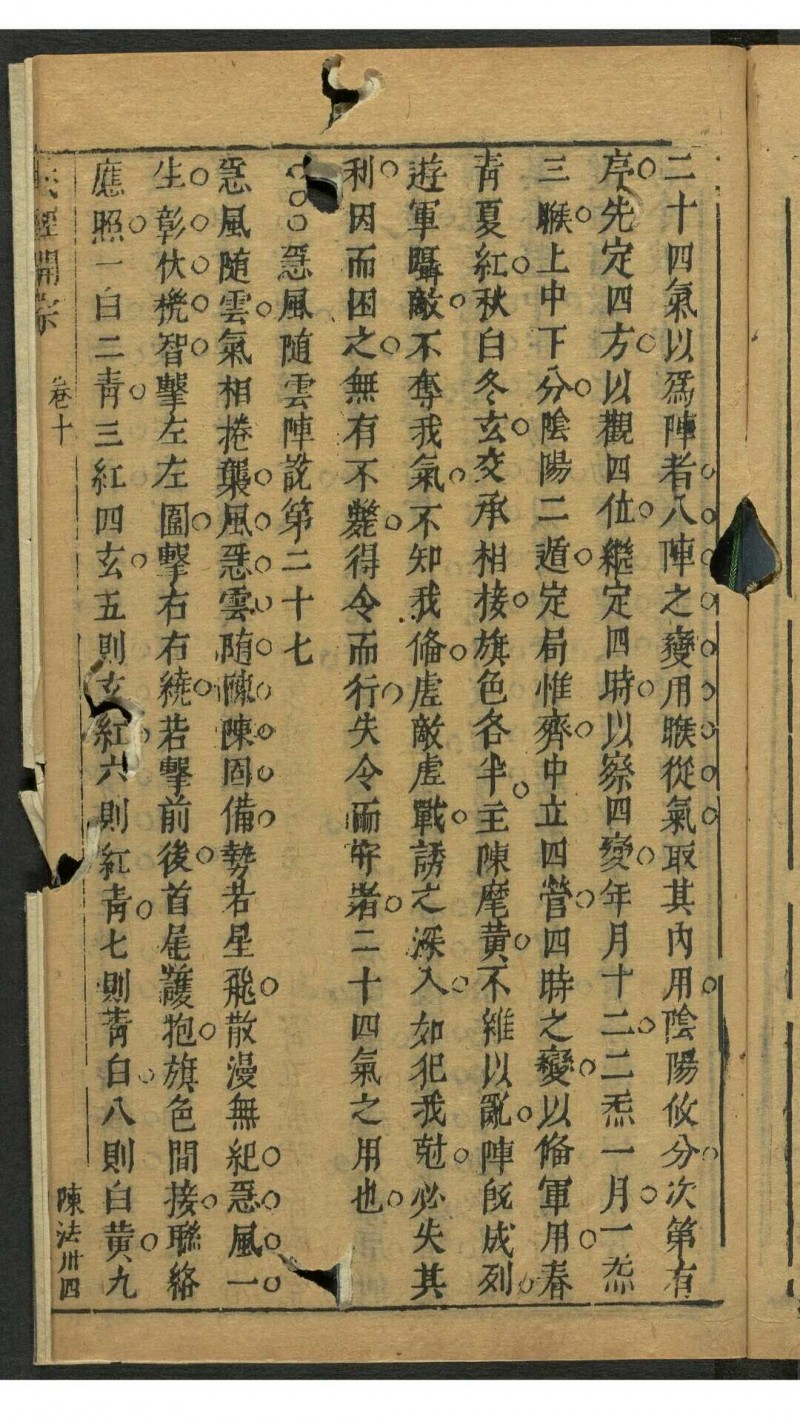 二十四氣以爲陣者八陣之變用睺從氣取其內用陰陽攸分次第有
序先定四方以觀四位繼定四時以察四變年月十二二炁一月一炁
三睺上中下分陰陽二遁定局惟齊中立四營四時之變以俻軍用春
青夏紅秋白冬玄交承相接旗色各半主陳麾黃不雜以亂陣旣成列
遊軍囁敵不奪我氣不知我俻虛敵虛戰誘之深入如犯我尅必失其
利因而困之無有不斃得令而行失令而守者二十四氣之用也
惡風隨雲陣說第二十七
惡風随雲氣相捲襲風惡雲随陳陳固備勢若星飛散漫無紀惡風一
生彰伏㧪智擊左左圍擊右右繞若擊前後首尾護抱旗色間接聯絡
應照一白二青三紅四玄五則玄紅六則紅青七則青白八則白黃九
經開宗 卷十 陳法卅四